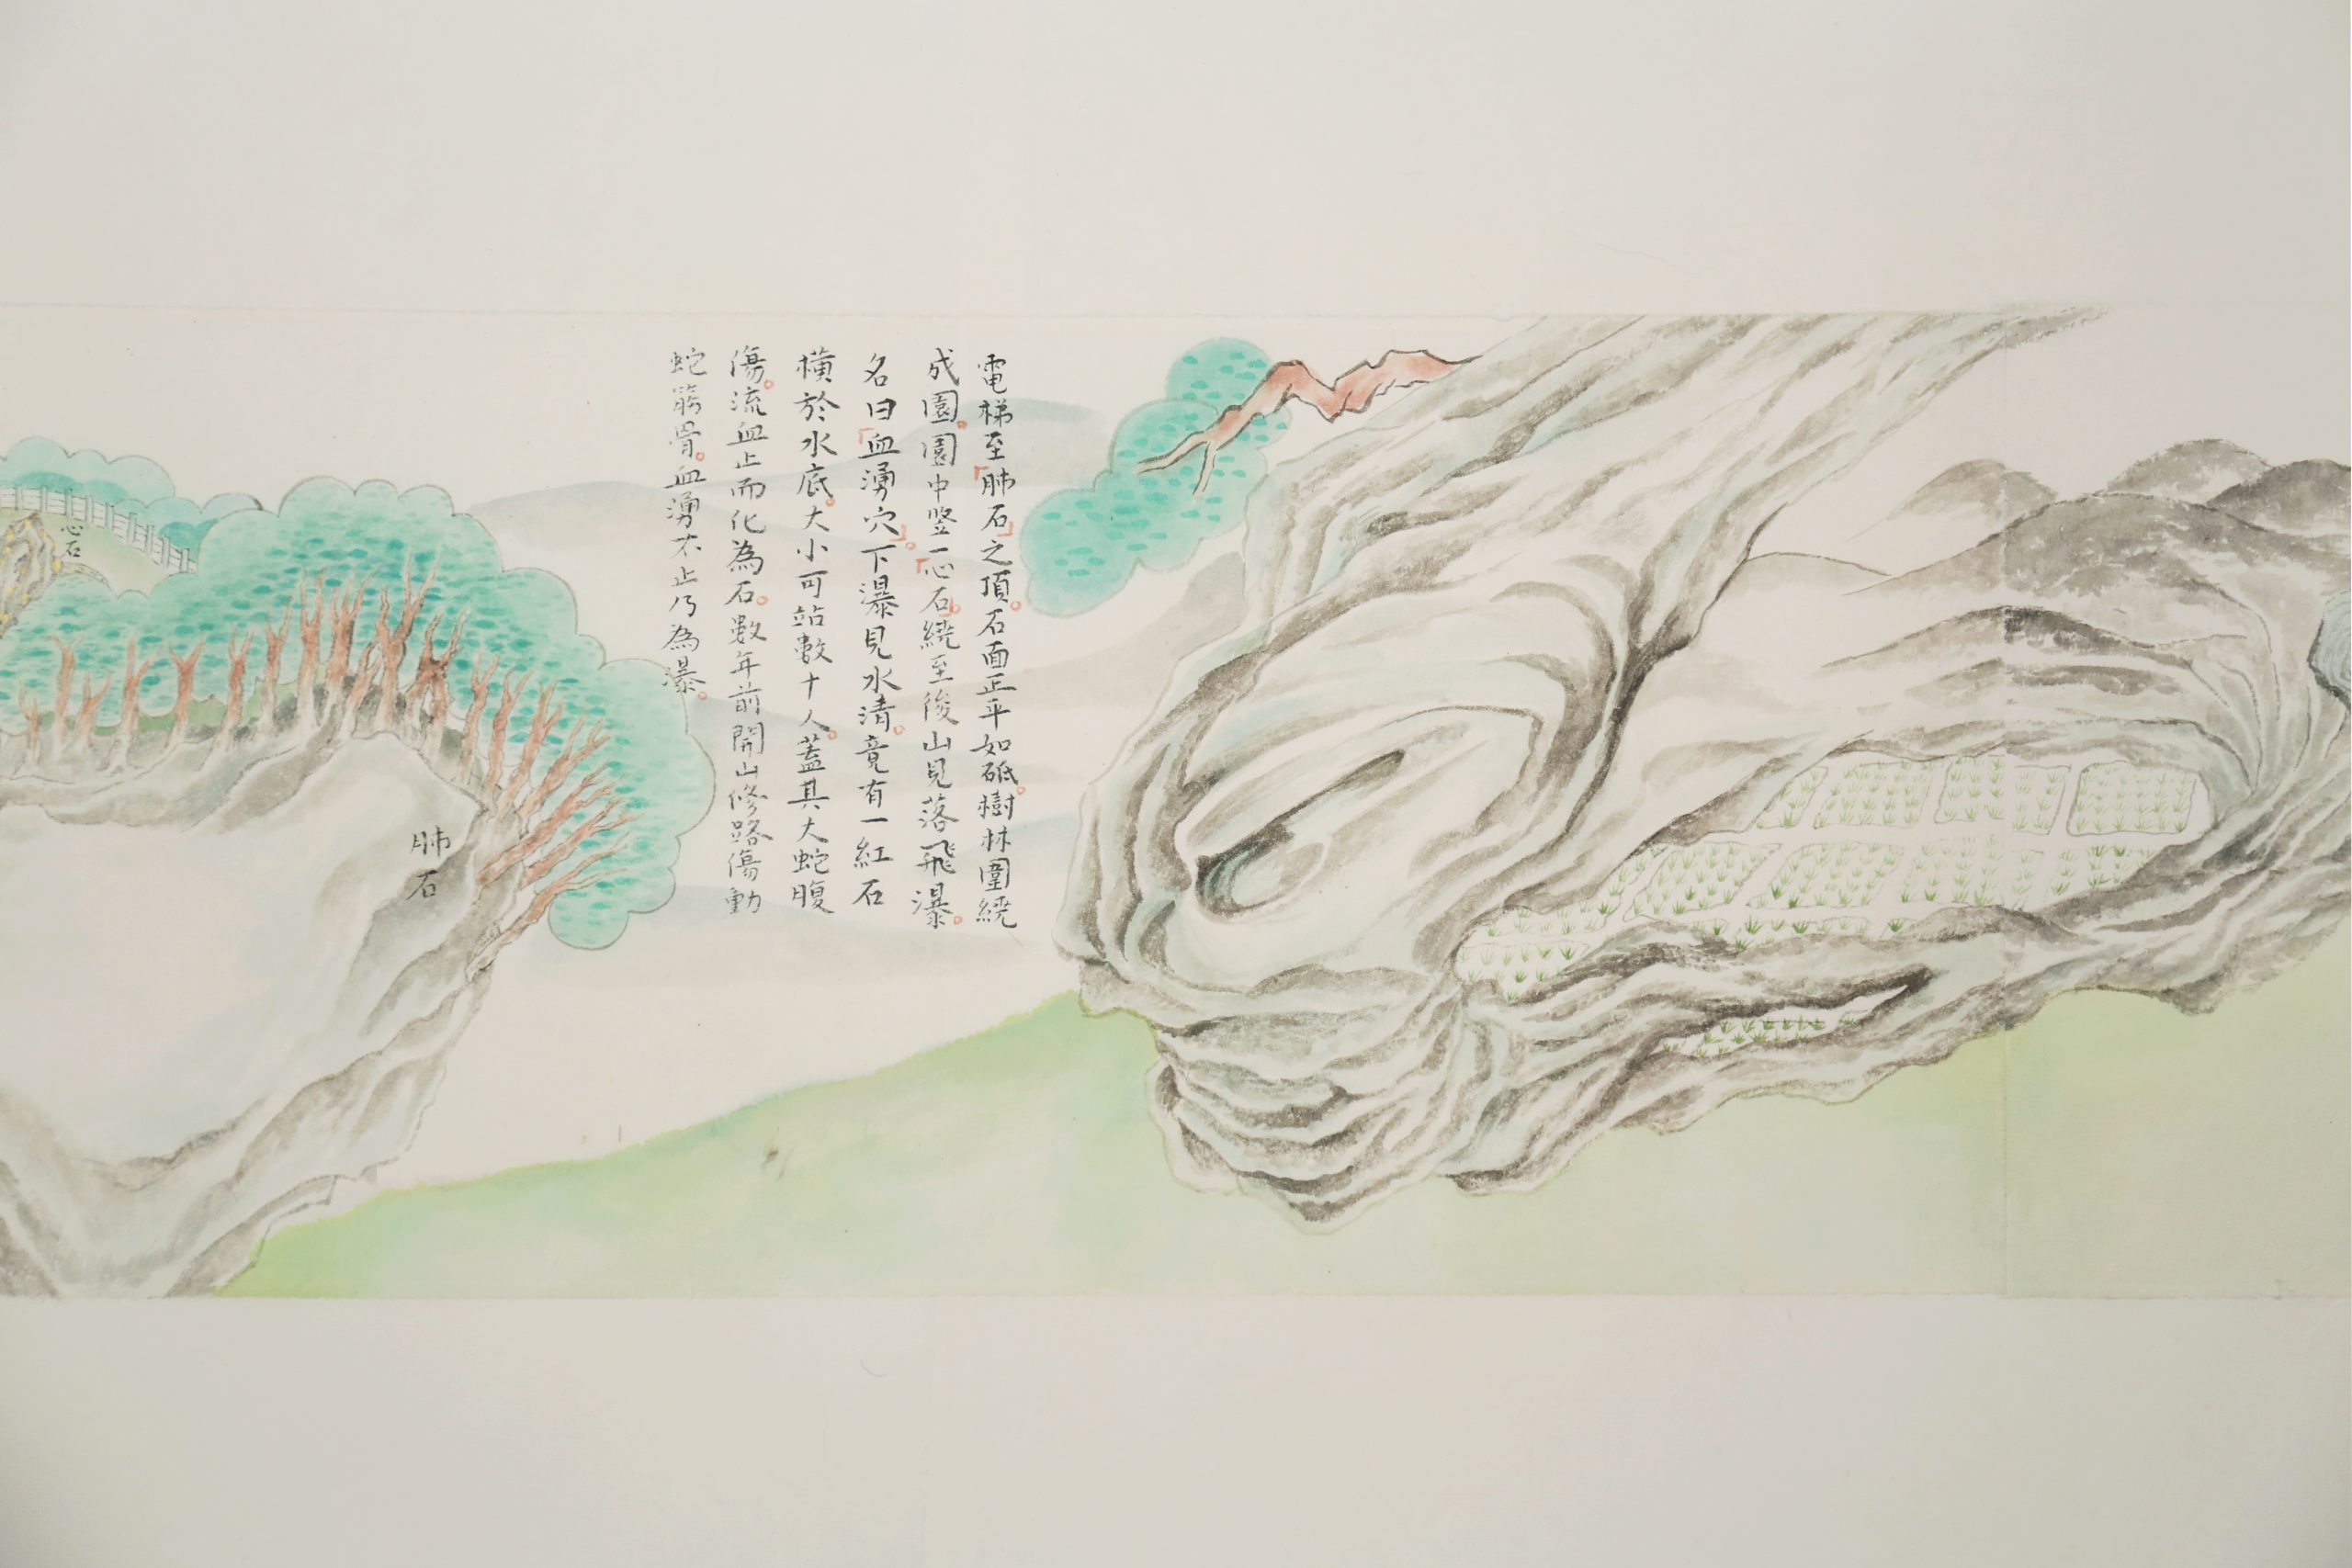 電梯至「肺石」之頂。石面正平如砥。樹林圍繞
成園。園中豎一「心石」。繞至後山見落飛瀑。
名曰「血湧穴」。下瀑見水清。竟有一紅石
橫於水底。大小可站數十人。蓋其大蛇腹
傷。流血止而化為石。數年前開山修路傷動
蛇筋骨。血湧不止乃為瀑。
肺石
心石